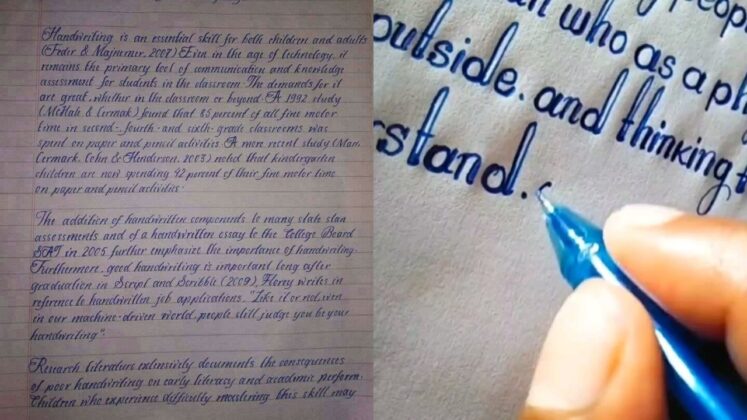 Handwriting is an essential skill for both children and adults
(Feder & Majnemer, 2007) Even in the age of technology, it
remains the primary tool of communication and knowledge
assessment for students in the classroom The demands for it
are great, whether in the classroom or beyond A 1992 study
found that 85 percent of all fine motor
time in second-, fourth- and sixth- grade classrooms was
spent on paper and pencil activities A more recent study
Cermark, Cohn & Henderson, 2003) noted that kindergarten
children are now spending 42 percent of their fine motor time
on paper and pencil activities.
The addition of handwritten components to many state
assessments and of a handwritten essay to the College Board
SAT in 2005 further emphasize the importance of handwriting.
Furthermore, good handwriting is important long after
graduation in Script and Scribble (2009), Florey writes in
reference to handwritten job applications, "Like it or not, even
in our machine-driven world, people still judge you by your
handwriting".
Research literature extensively documents the consequences
of poor handwriting on early literacy and academic perform.
Children who experience difficulty mastering this skill may
who as a ph
outside. and thinking t
rstand.